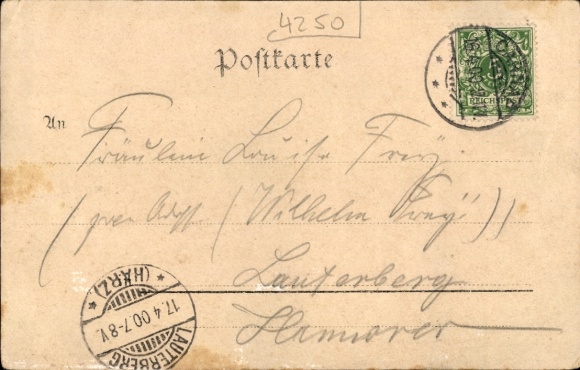 4250
Postkarte
REICHSPOST
An
Fräulein Louise Frey.
(per Adr. (Wilhelm Frey))
Lauterberg
Hannover
LAUTERBERG
17.4.00.7-8V.
* (HARZ) *